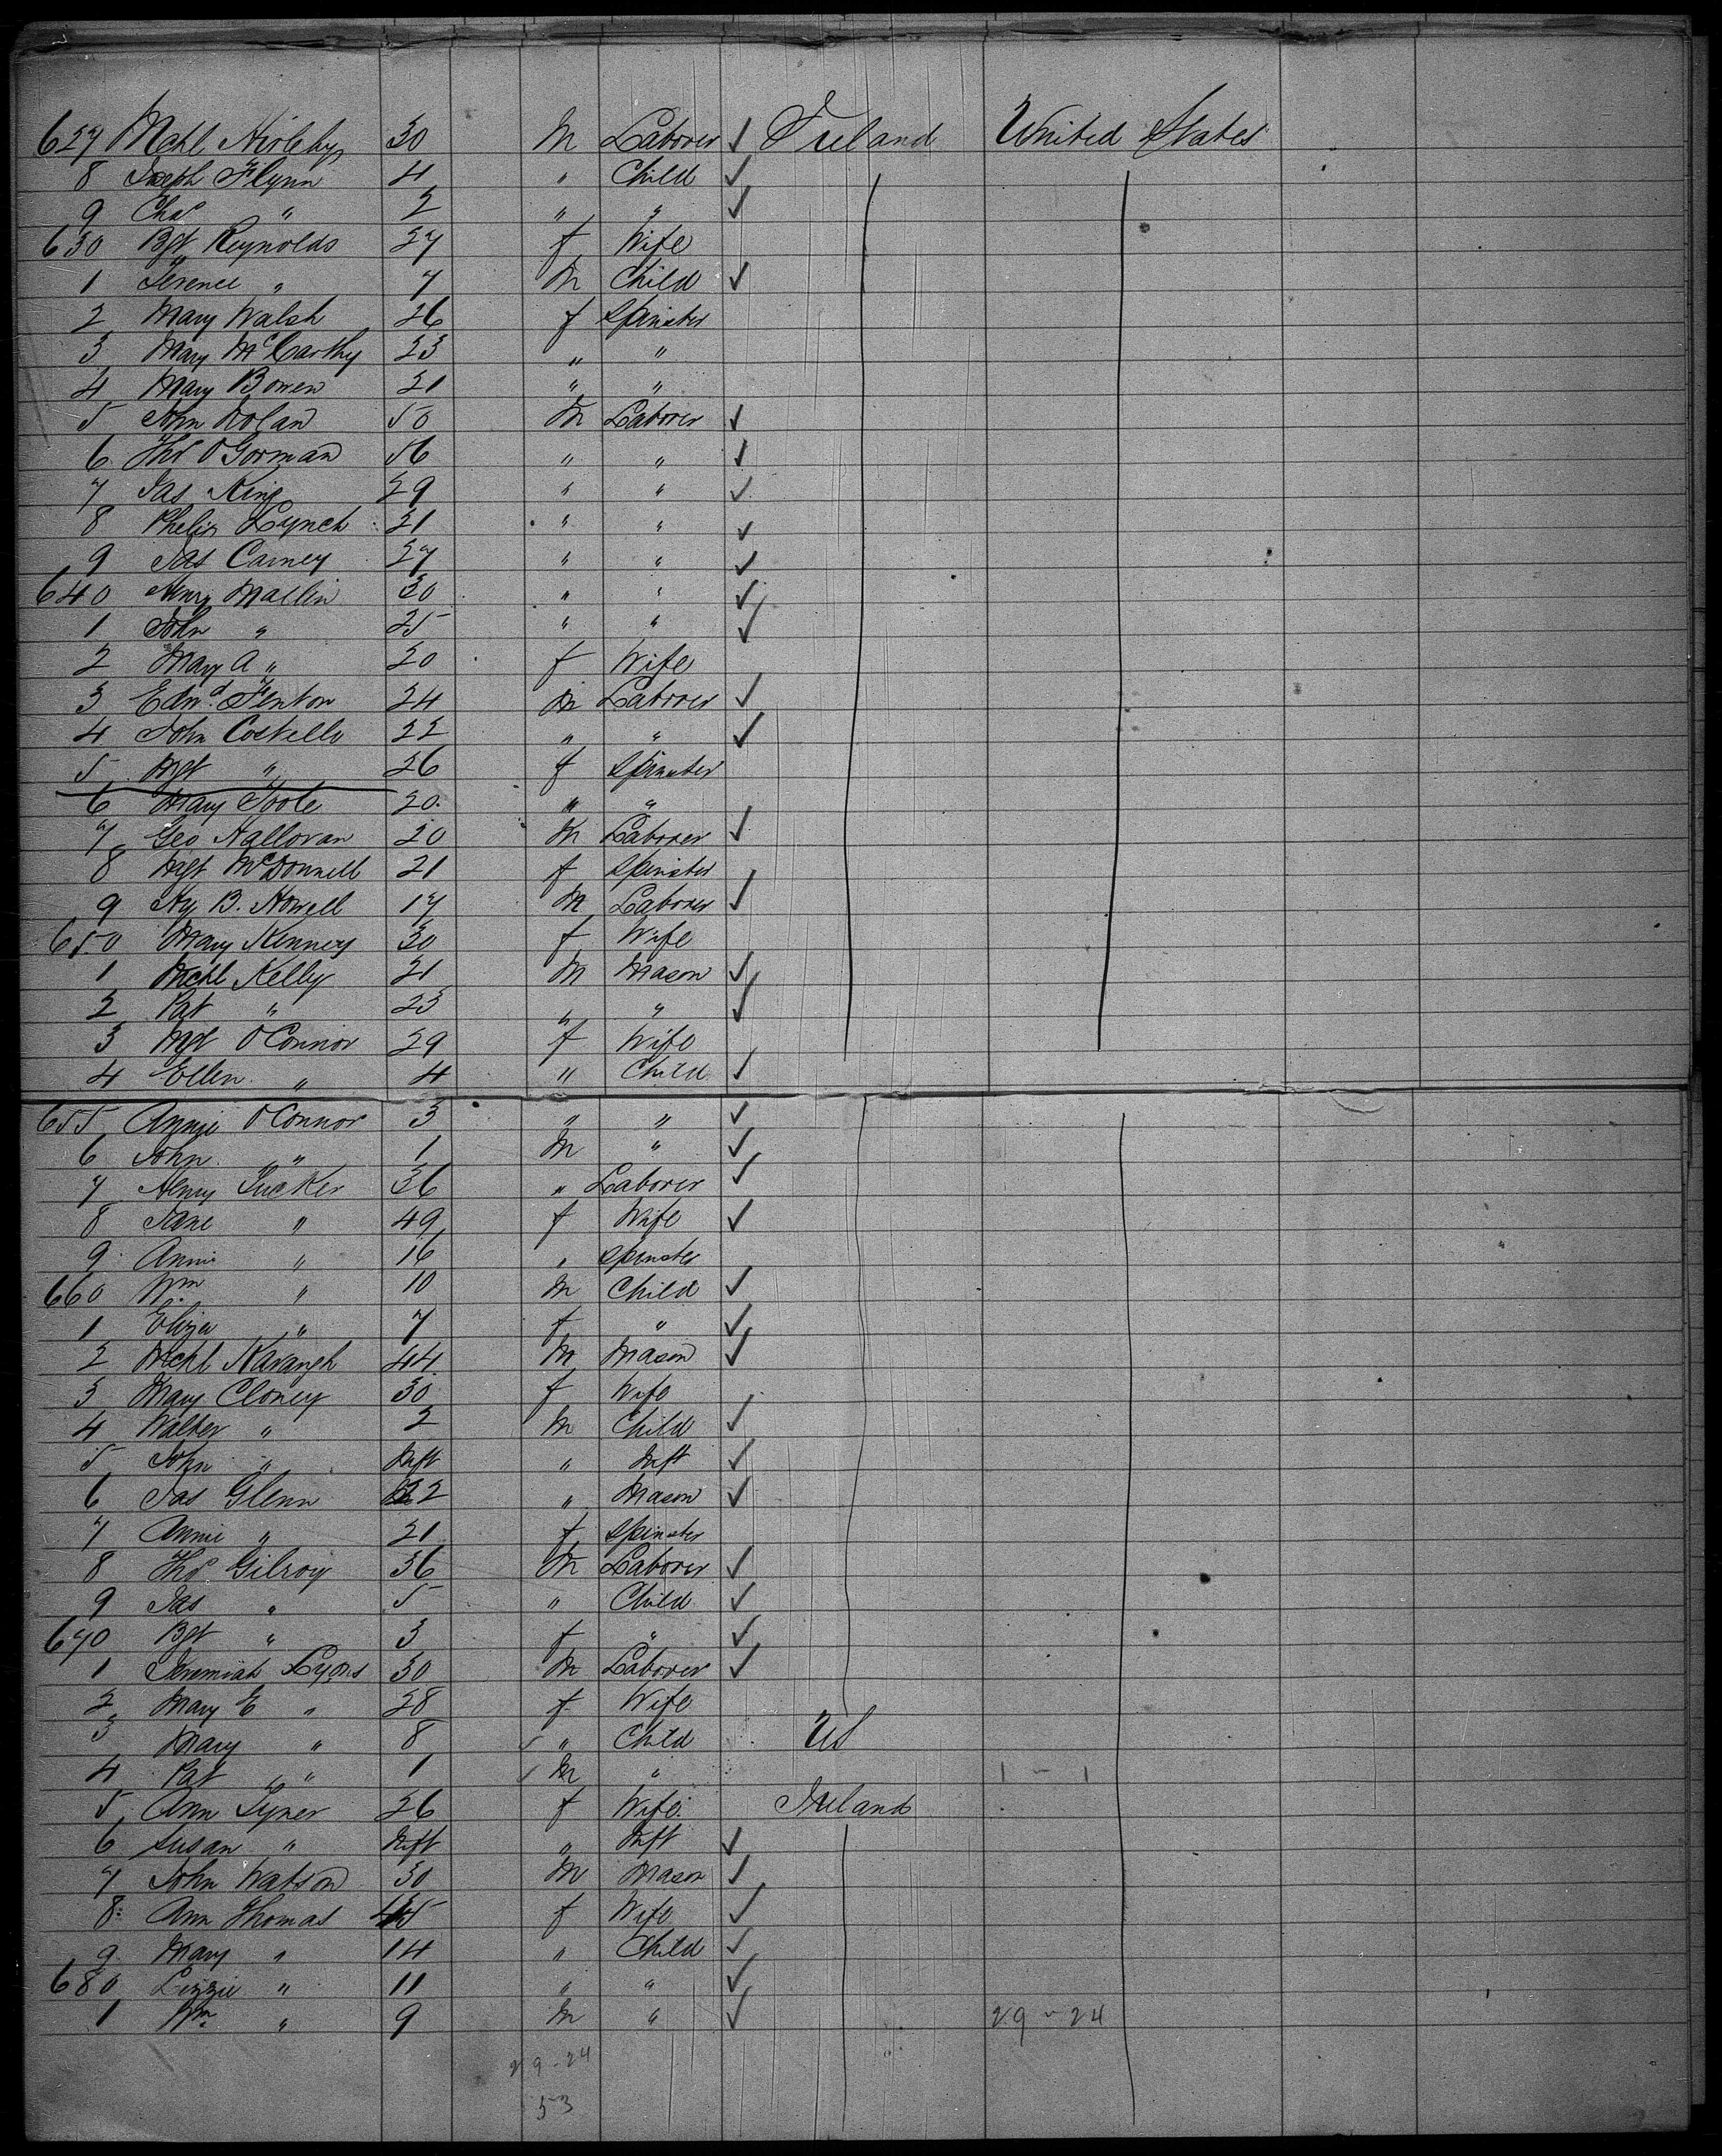 627 Mchl 30 M Laborer ✓ Ireland United States
8 Joseph Flynn 4 " Child ✓
9 Chas " 2 " " ✓
630 Bgt Reynolds 27 f Wife
1 Terence " 7 M Child ✓
2 Mary Walsh 26 f Spinster
3 Mary McCarthy 23 " "
4 Mary Bowen 21 " "
5 John Nolan 50 M Laborer ✓
6 Thos O'Gorman 56 " " ✓
7 Jas King 29 " " ✓
8 Phelix Lynch 21 " " ✓
9 Jas Carney 27 " " ✓
640 Henry Mallin 30 " " ✓
1 John " 25 " " ✓
2 Mary A " 20 f Wife
3 Edwd Fenton 24 M Laborer ✓
4 John Costello 22 " " ✓
5 Mgt " 26 f Spinster
6 Mary Toole 20 " "
7 Geo Halloran 20 M Laborer ✓
8 Mgt McDonnell 21 f Spinster
9 Hy B. Howell 17 M Laborer ✓
650 Mary Kenney 30 f Wife
1 Mchl Kelly 21 M Mason ✓
2 Pat " 23 " " ✓
3 Mgt O'Connor 29 f Wife
4 Ellen " 4 " Child ✓
655 Annie O'Connor 3 " " ✓
6 John " 1 M " ✓
7 Henry Tucker 36 " Laborer ✓
8 Jane " 49 f Wife ✓
9 Annie " 16 " Spinster
660 Wm " 10 M Child ✓
1 Eliza " 7 f " ✓
2 Mchl Kavangh 44 M Mason ✓
3 Mary Cloney 30 f Wife
4 Walter " 2 M Child ✓
5 John " Inft " Inft ✓
6 Jas Glenn 22 " Mason ✓
7 Annie " 21 f Spinster
8 Thos Gilroy 36 M Laborer ✓
9 Jas " 5 " Child ✓
670 Bgt " 3 f " ✓
1 Jeremiah Lyons 30 M Laborer ✓
2 Mary E " 28 f Wife
3 Mary " 8 " Child US
4 Pat " 1 M " 1 - 1
5 Ann Tyner 26 f Wife Ireland
6 Susan " Inft " Inft ✓
7 John Watson 30 M Mason ✓
8 Ann Thomas 45 f Wife ✓
9 Mary " 14 " Child ✓
680 Lizzie " 11 " " ✓
1 Wm " 9 M " ✓ 29 - 24
29 - 24
53